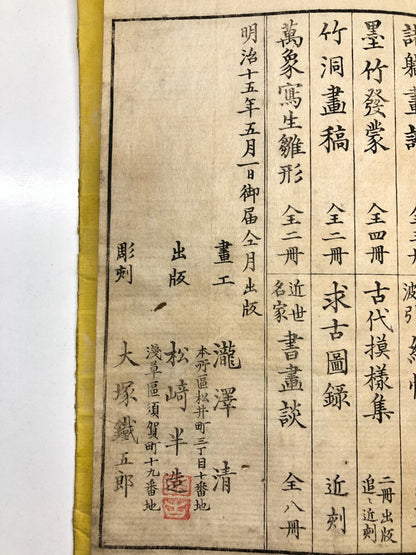 墨竹發蒙 全四冊
古代摸樣集 二冊出版 追々近刻
竹洞畫稿 全二冊
求古圖錄 近刻
萬象寫生雛形 全二冊
近世名家書畫談 全八冊
明治十五年五月一日御届 仝月出版
畫工 瀧澤清
本所區松井町三丁目十番地
出版 松崎半造
淺草區須賀町十九番地
彫刻 大塚鐵五郎